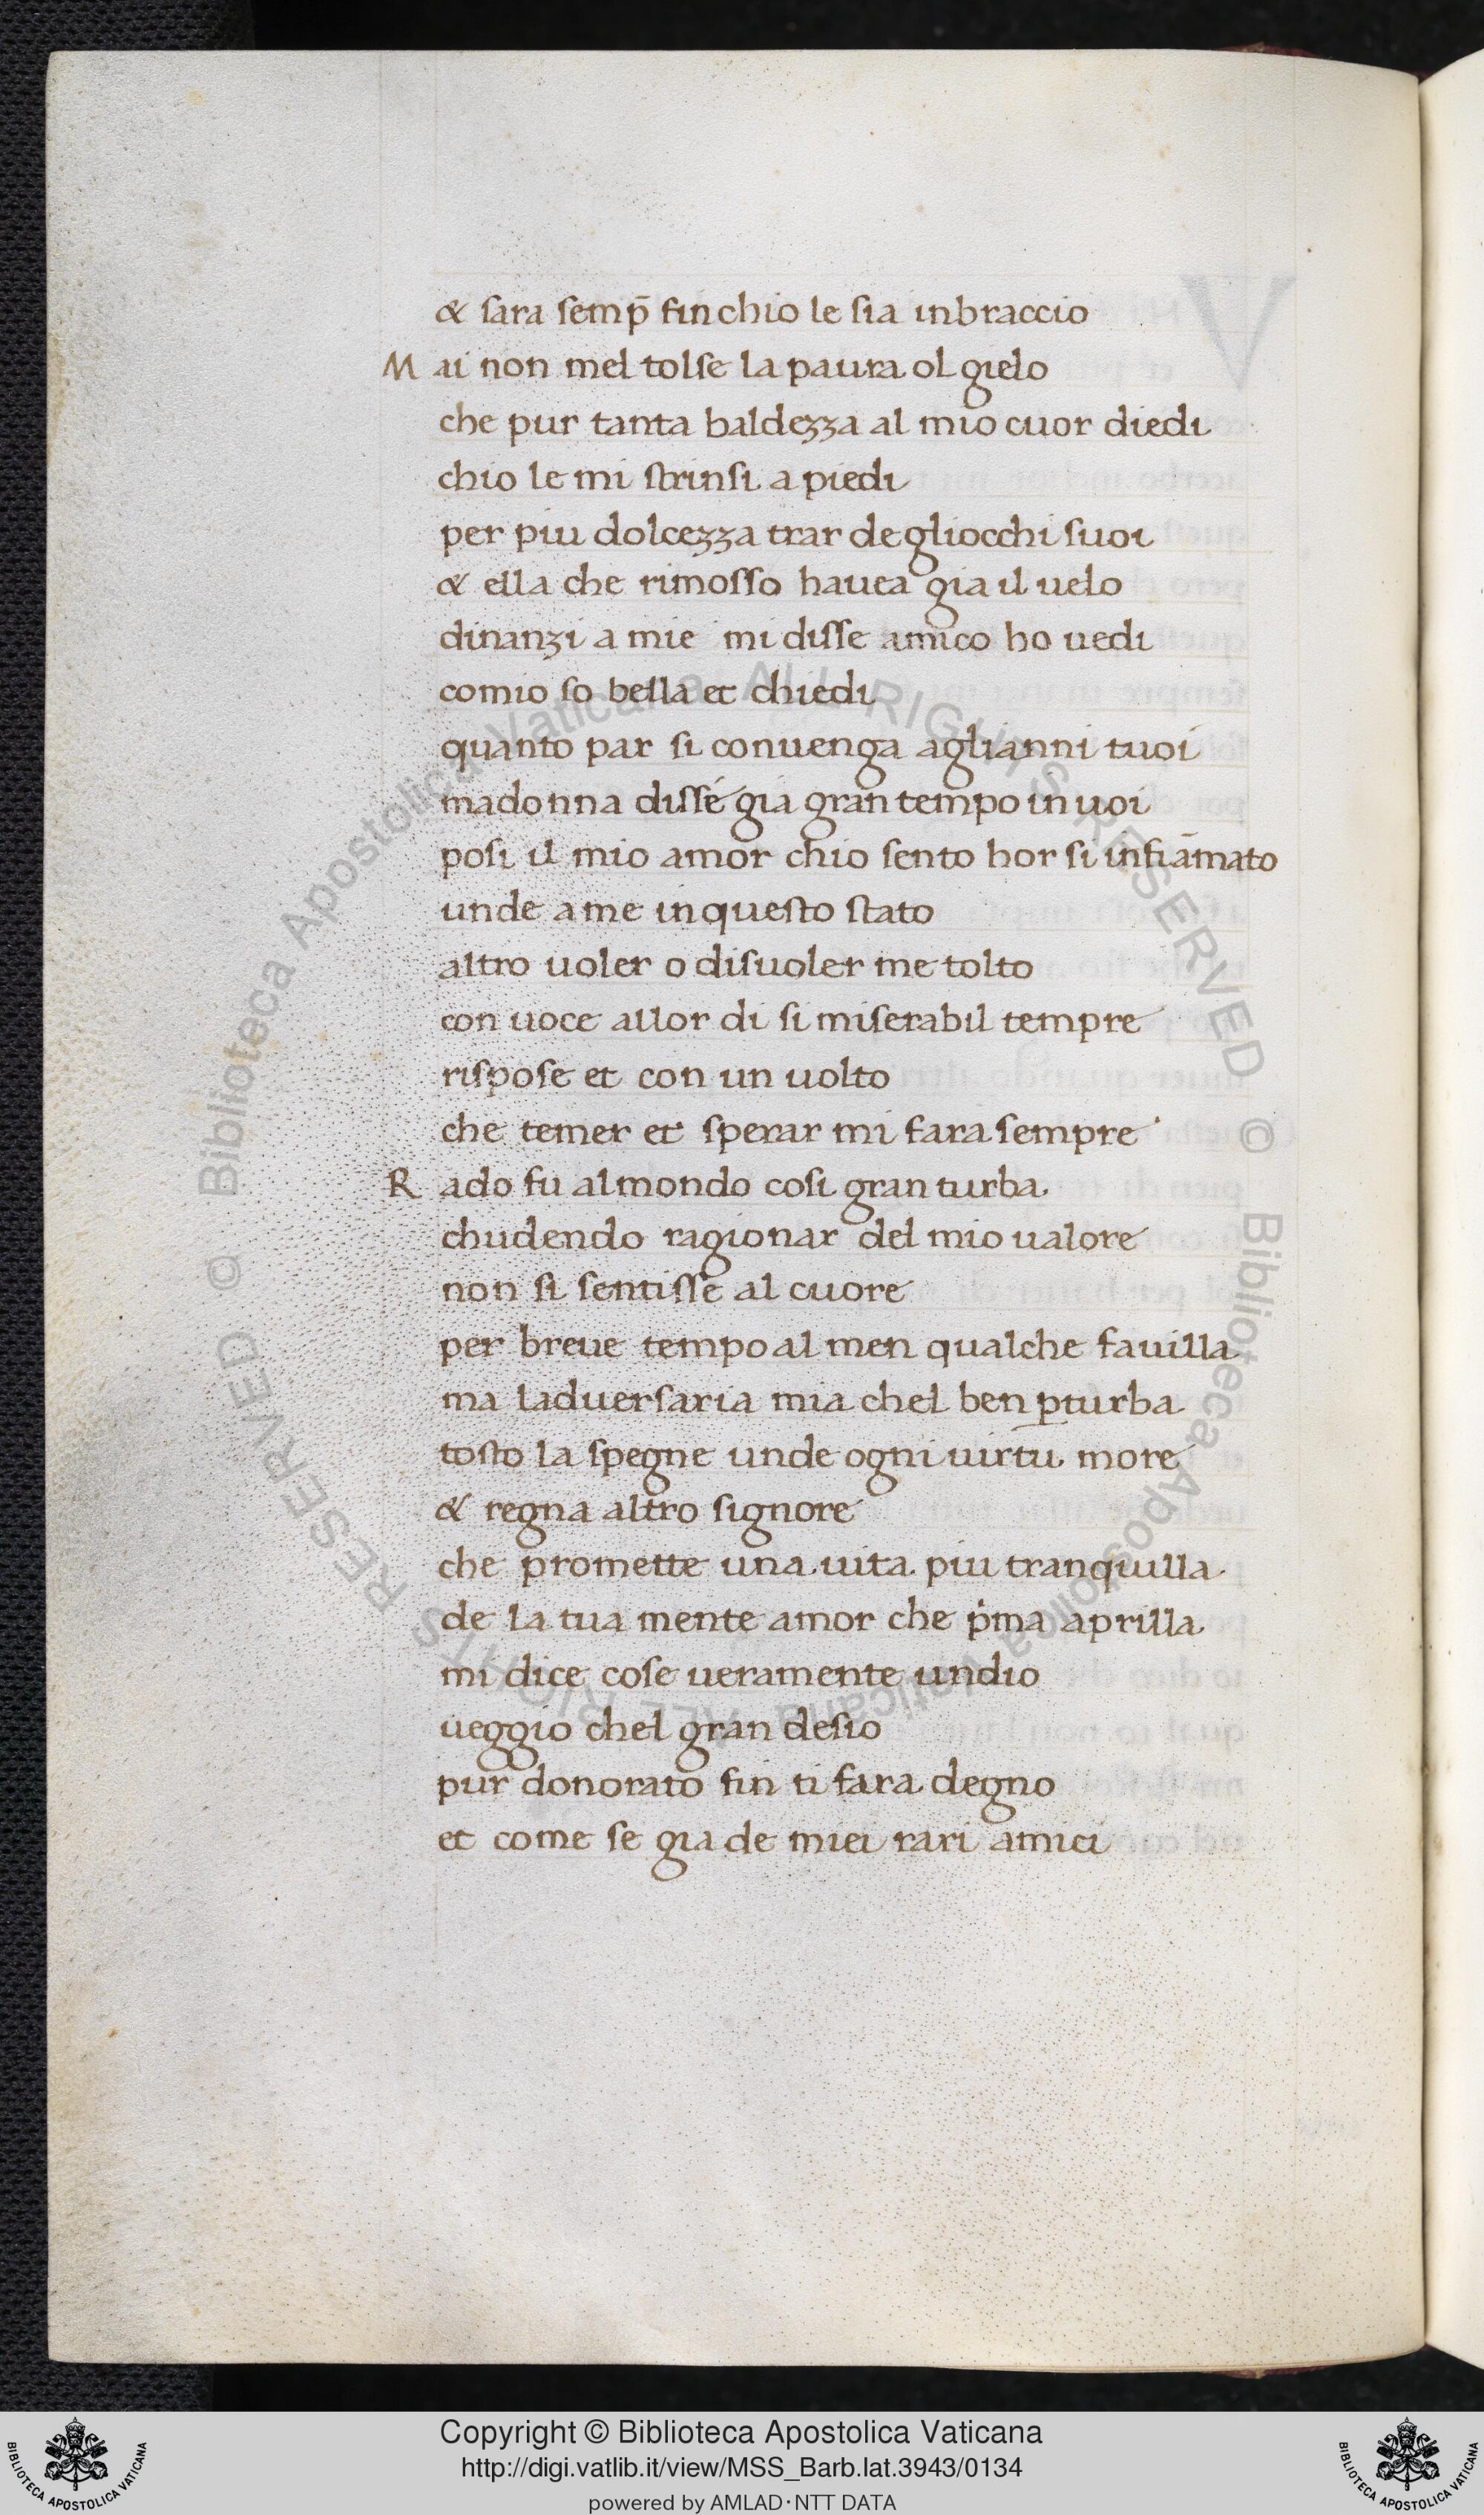 & sara semp̄ fin chio le sia in braccio
Mai non mel tolse la paura ol gielo
che pur tanta baldezza al mio cuor diedi
chio le mi strinsi a piedi
per piu dolcezza trar de gliocchi suoi
& ella che rimosso hauea gia il uelo
dinanzi a mie mi disse amico ho uedi
comio so bella et chiedi
quanto par si conuenga aglianni tuoi
madonna dissé gia gran tempo in uoi
posi il mio amor chio sento hor si infiāmato
unde a me in questo stato
altro uoler o disuoler me tolto
con uoce allor di si miserabil tempre
rispose et con un uolto
che temer et sperar mi fara sempre
Rado fu al mondo cosi gran turba
chudendo ragionar del mio ualore
non si sentisse al cuore
per breue tempo al men qualche fauilla
ma laduersaria mia chel ben ꝑturba
tosto la spegne unde ogni uirtu more
& regna altro signore
che promette una uita piu tranquilla
de la tua mente amor che p̍ma aprilla
mi dice cose ueramente undio
ueggio chel gran desio
pur donorato fin ti fara degno
et come se gia de miei rari amici
© Biblioteca Apostolica Vaticana ALL RIGHTS RESERVED © Biblioteca Apostolica Vaticana ALL RIGHTS RESERVED
Copyright © Biblioteca Apostolica Vaticana
http://digi.vatlib.it/view/MSS_Barb.lat.3943/0134
powered by AMLAD·NTT DATA
BIBLIOTECA APOSTOLICA VATICANA
BIBLIOTECA APOSTOLICA VATICANA